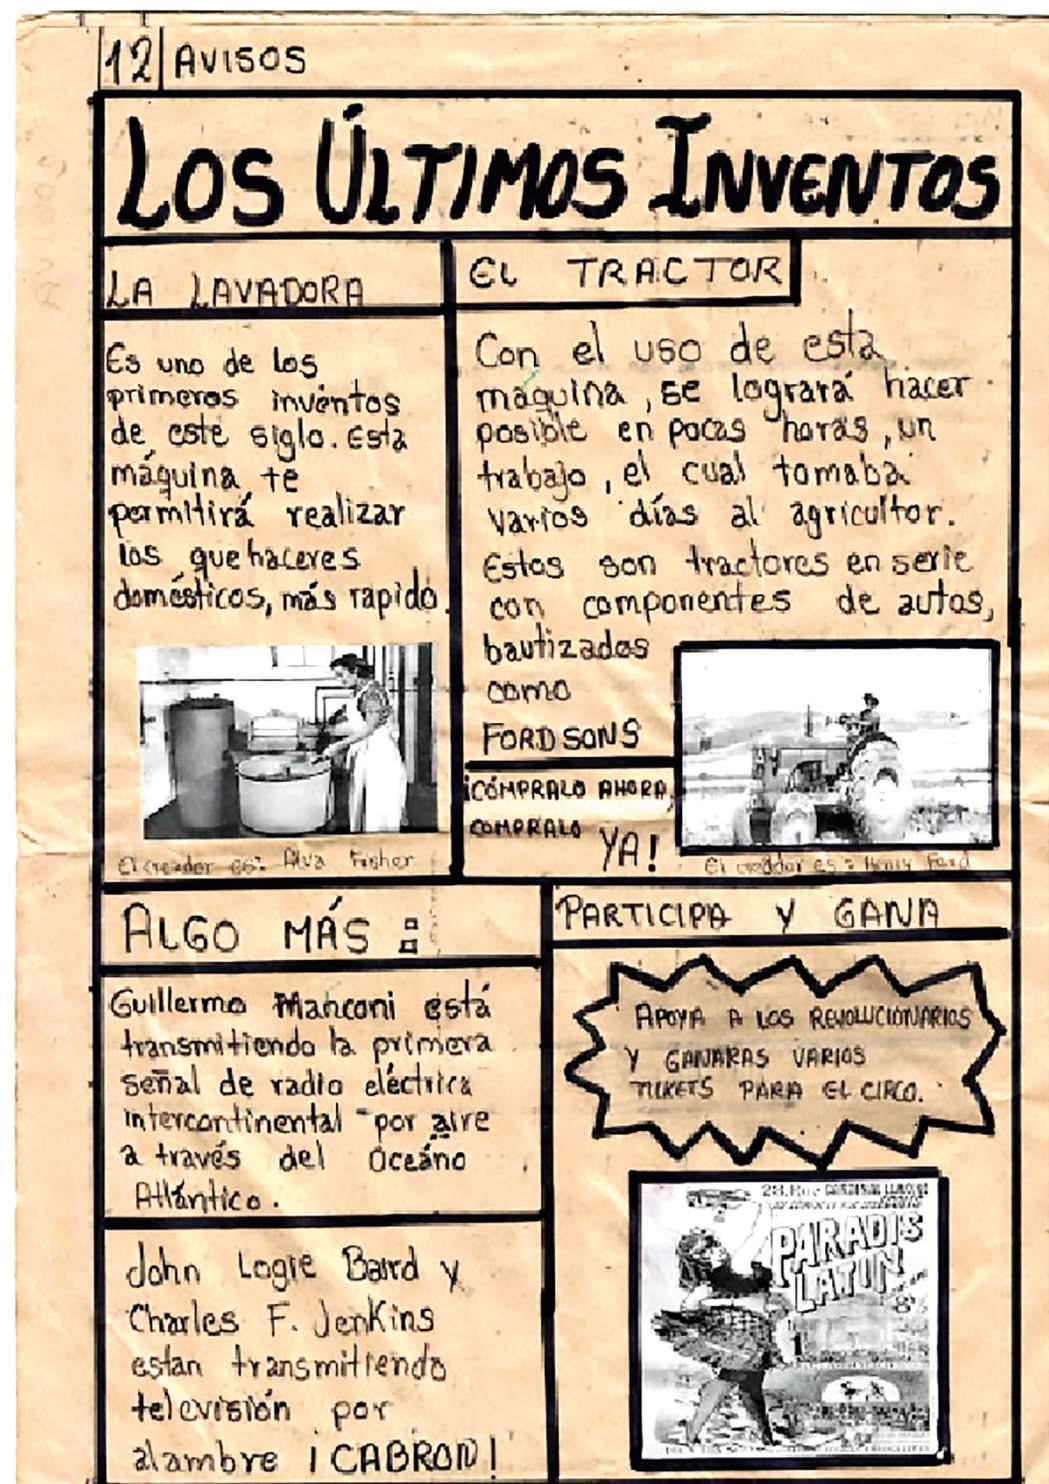 12 AVISOS
LOS ÚLTIMOS INVENTOS
LA LAVADORA
Es uno de los
primeros inventos
de este siglo. Esta
máquina te
permitirá realizar
los quehaceres
domésticos, más rapido.
El creador es: Alva Fisher
EL TRACTOR
Con el uso de esta
máquina, se logrará hacer
posible en pocas horas, un
trabajo, el cual tomaba
varios días al agricultor.
Estos son tractores en serie
con componentes de autos,
bautizados
como
FORDSONS
¡CÓMPRALO AHORA,
COMPRALO YA!
El creador es: Henry Ford
ALGO MÁS:
Guillermo Manconi está
transmitiendo la primera
señal de radio eléctrica
intercontinental por aire
a través del Oceáno
Atlántico.
John Logie Baird y
Charles F. Jenkins
estan transmitiendo
televisión por
alambre ¡CABRON!
PARTICIPA Y GANA
APOYA A LOS REVOLUCIONARIOS
Y GANARAS VARIOS
TICKETS PARA EL CIRCO.
28. Rue CARDINAL LEMOINE
PARADIS
LATIN